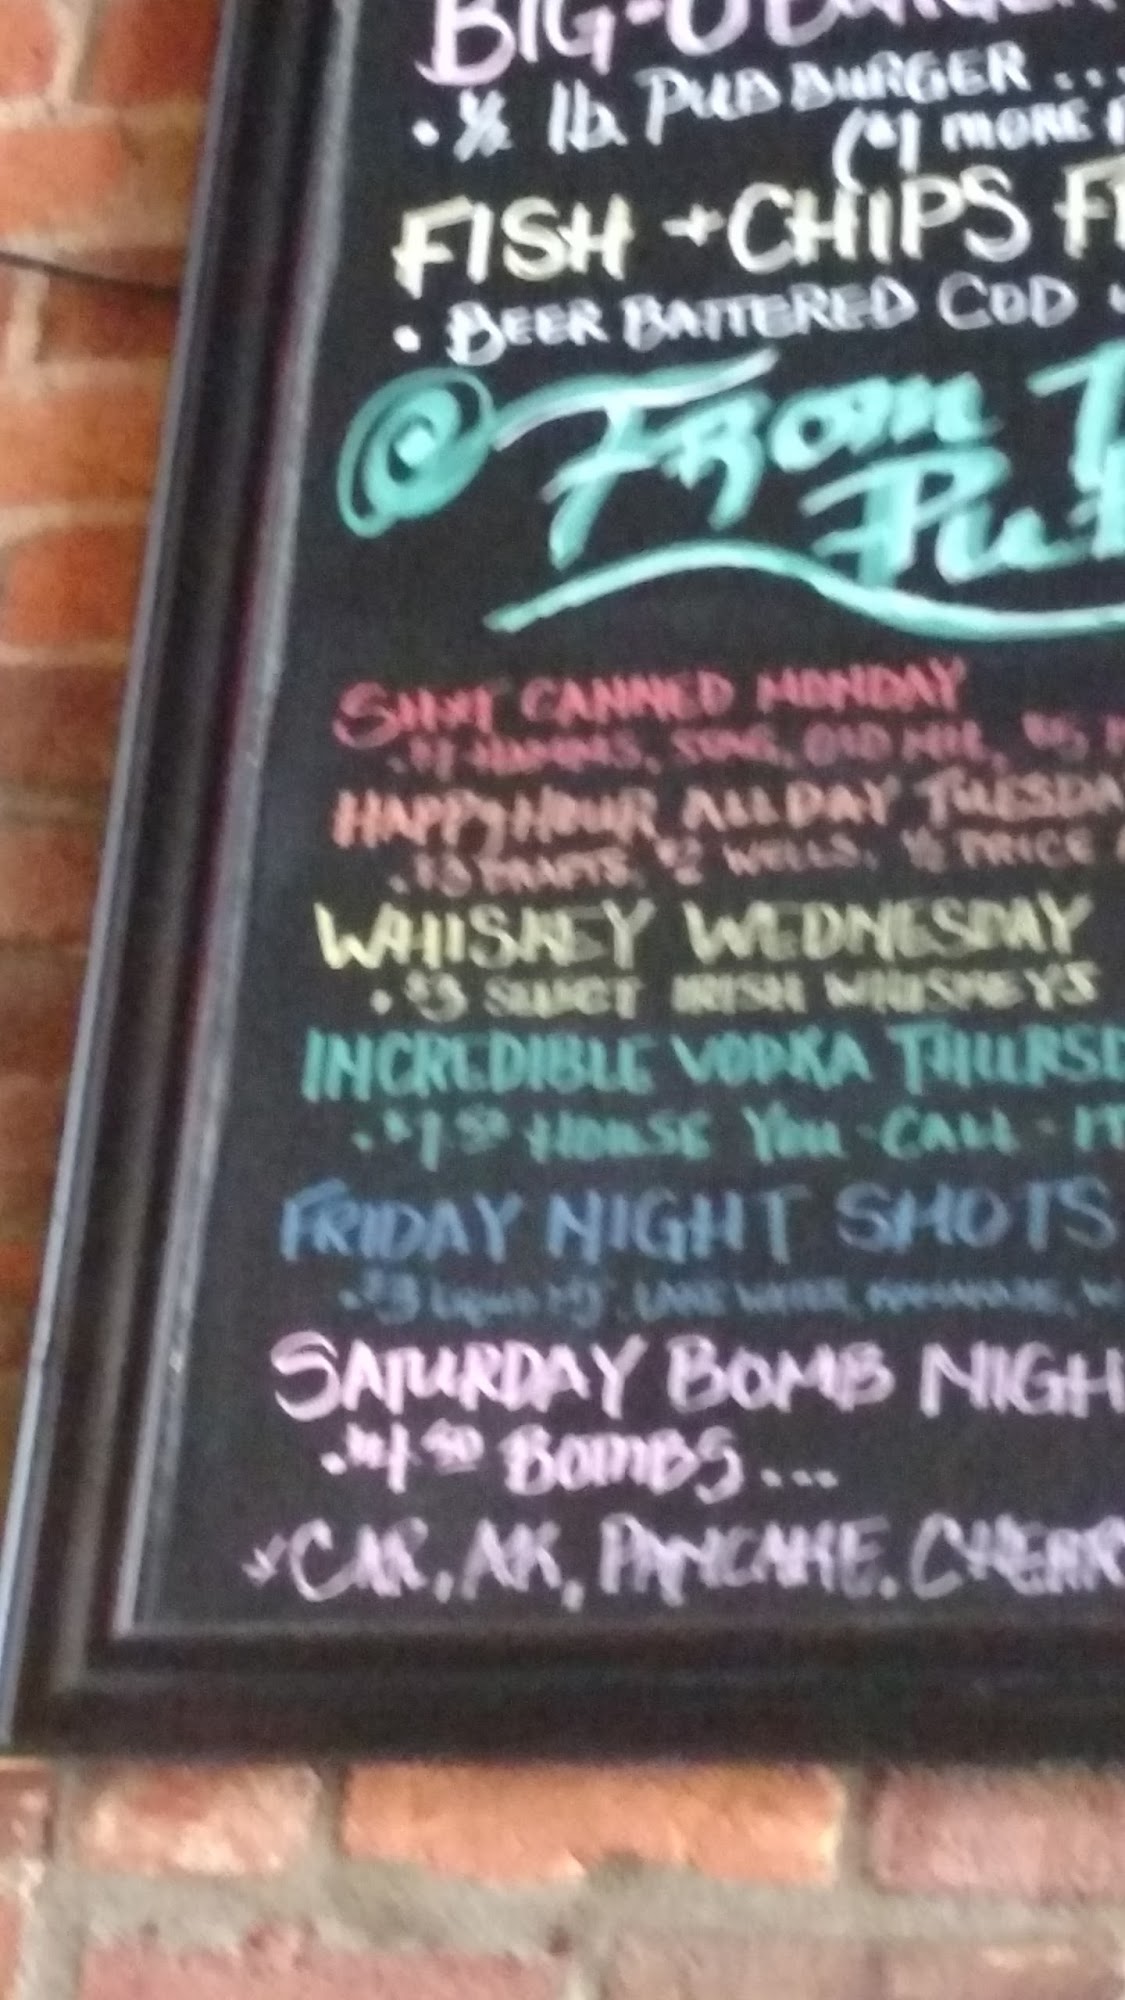 BIG-O BURGER
• ½ lb. PUB BURGER ...
MORE
FISH + CHIPS
• BEER BATTERED COD
@ FROM
PUB
CANNED MONDAY
HAPPY HOUR ALL DAY TUESDA
• $3 $2 WELLS, ½ PRICE
WHISKEY WEDNESDAY
• $3 SELECT IRISH WHISKEYS
INCREDIBLE VODKA THURSD
HOUSE YOU-CALL-IT
FRIDAY NIGHT SHOTS
SATURDAY BOMB NIGH
• $4.50 BOMBS...
CAR, AK, PANCAKE, CHERR